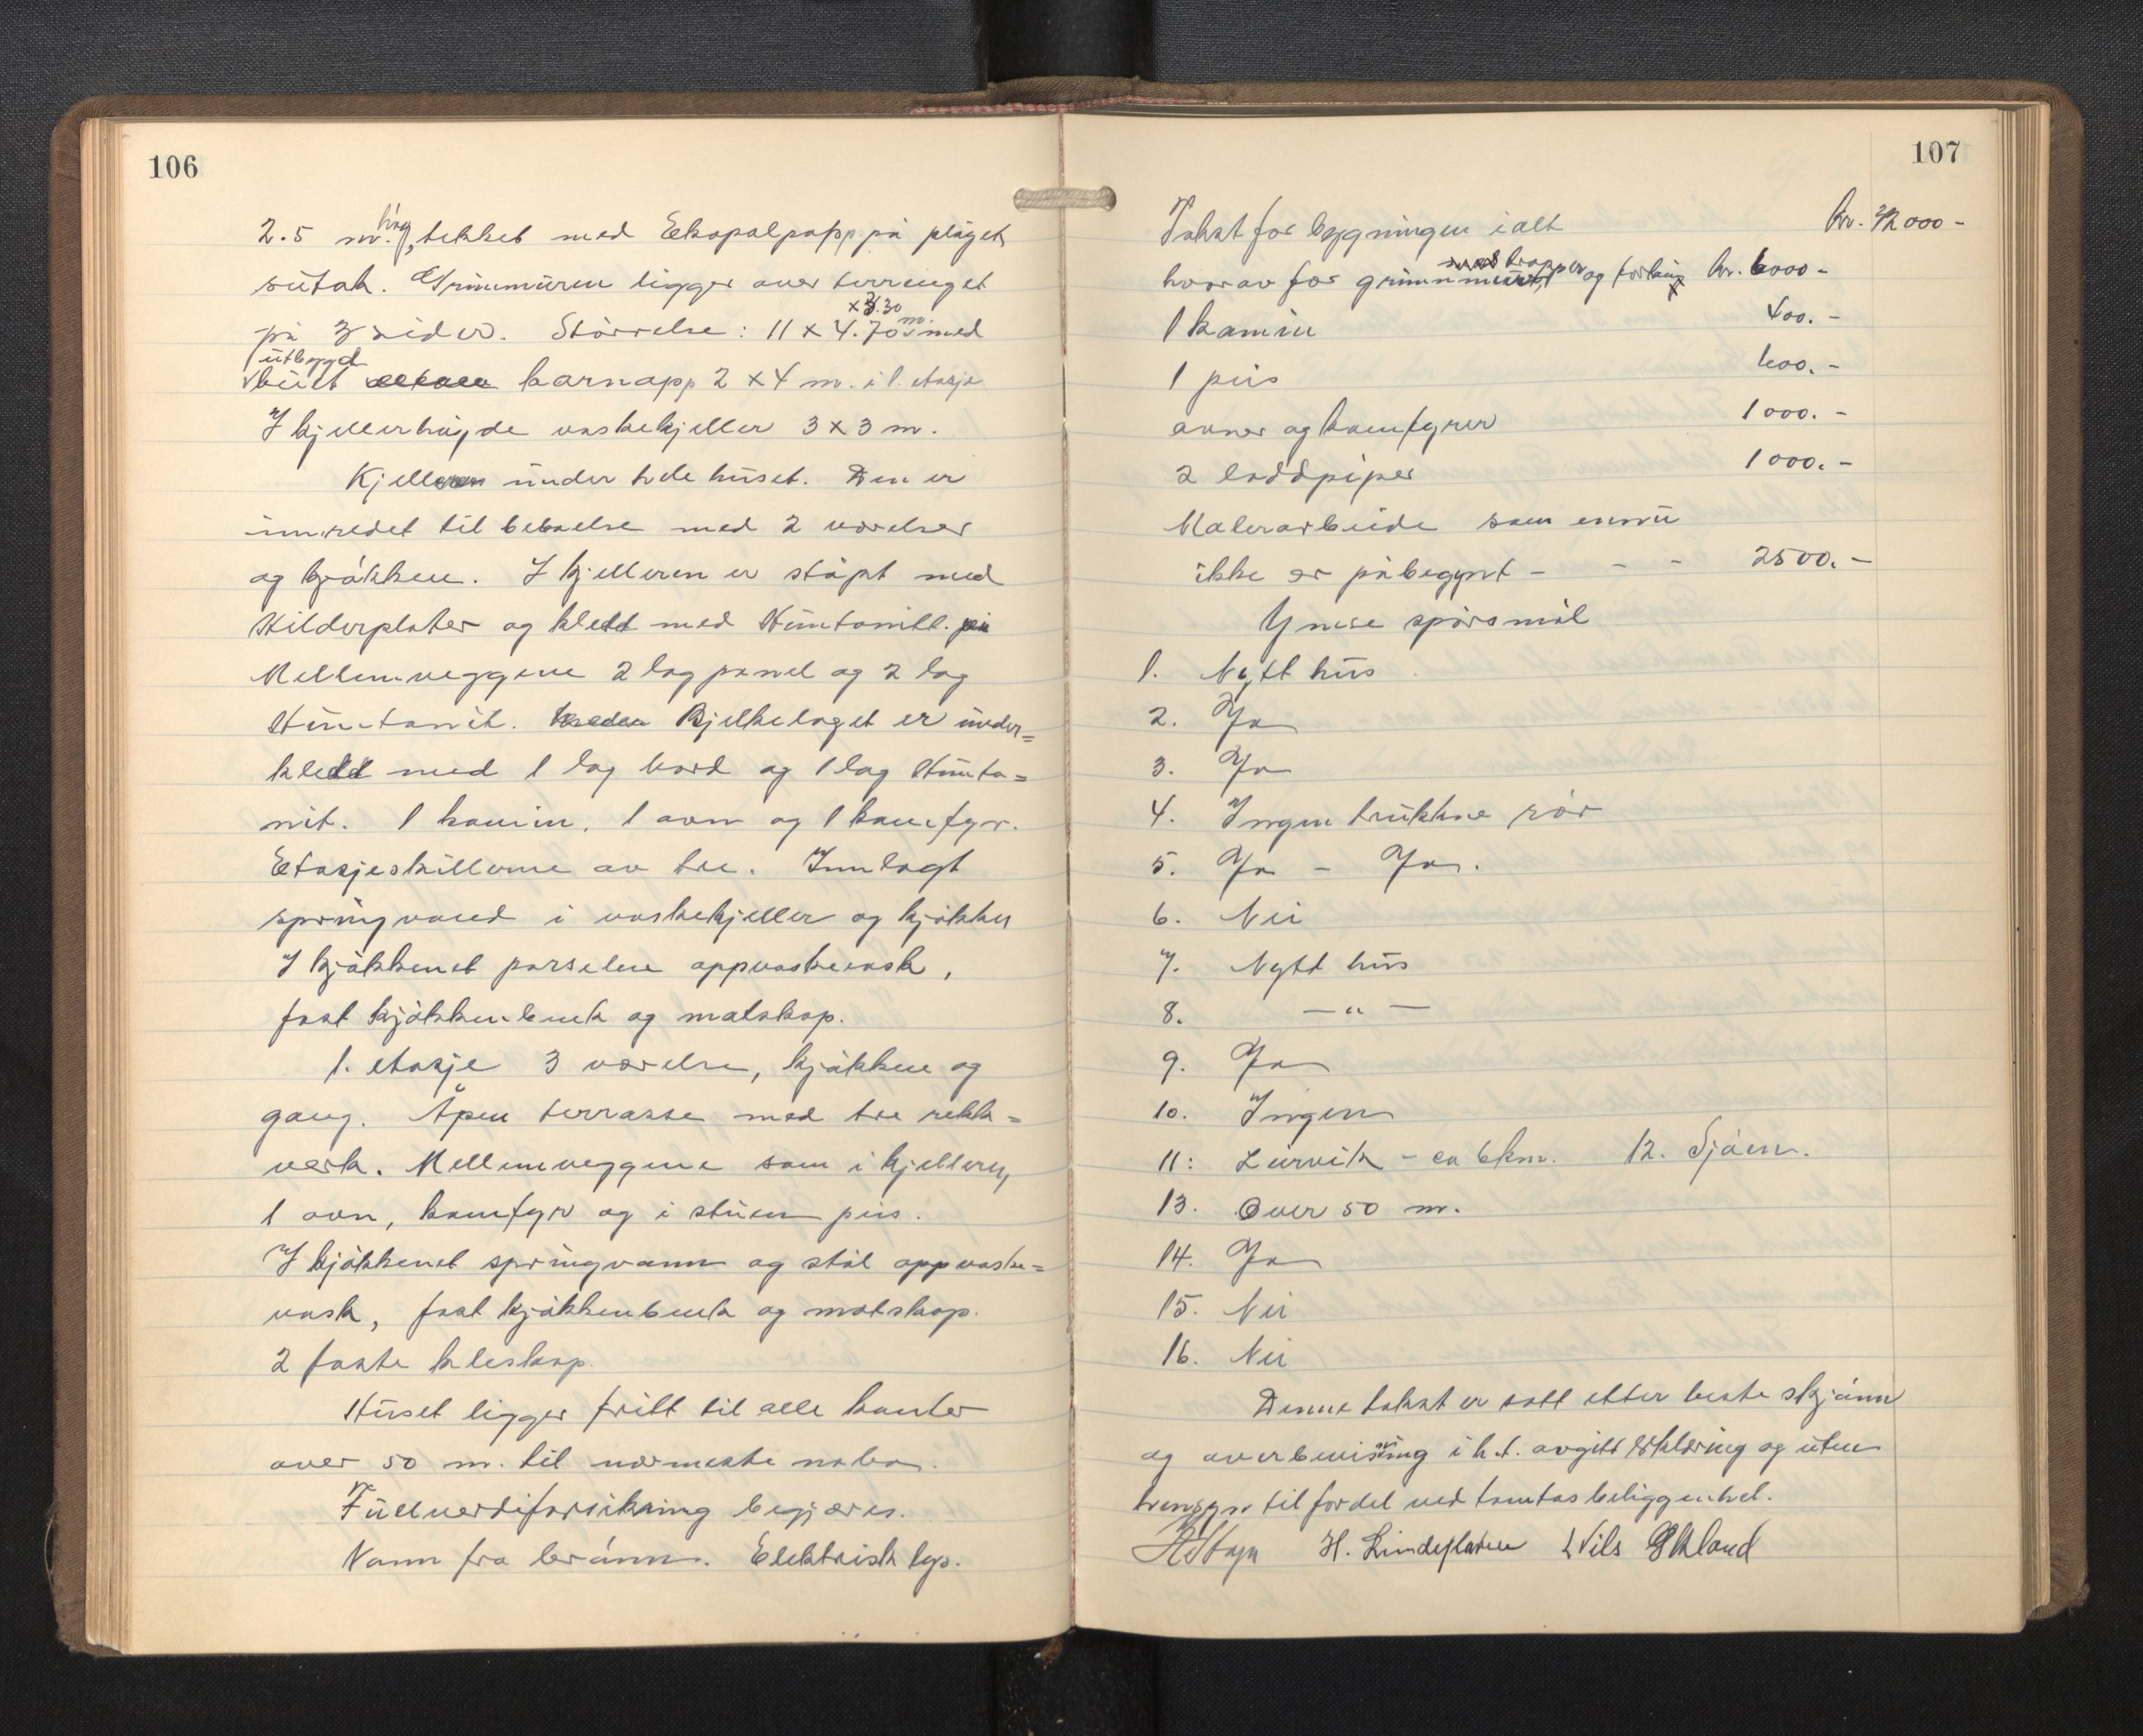 106
2.5 m. høg, tekket med Ekopalpapp på pløget
sutak. Grunnmuren ligger over terrenget
på 3 sider. Størrelse: 11 x 4.70 x 3.30 m. med
utbygd karnapp 2 x 4 m. i 1. etasje
I kjellerhøyde vaskekjeller 3 x 3 m.
Kjelleren under hele huset. Den er
innredet til beboelse med 2 værelser
og kjøkken. I kjelleren er støpt med
Hilderplater og kledd med Huntonitt.
Mellemveggene 2 lag panel og 2 lag
Huntonit. Bjelkelaget er under=
kledd med 1 lag bord og 1 lag Hunto=
nit. 1 kamin, 1 ovn og 1 komfyr.
Etasjeskillerne av tre. Innlagt
springvand i vaskekjeller og kjøkken
I kjøkkenet porselen oppvaskvask,
fast kjøkkenbenk og matskap.
1. etasje 3 værelser, kjøkken og
gang. Åpen terrasse med tre rekk=
verk. Mellemveggene som i kjelleren,
1 ovn, komfyr og i stuen peis.
I kjøkkenet springvann og stål oppvaske=
vask, fast kjøkkenbenk og matskap.
2 faste kleskap.
Huset ligger fritt til alle kanter
over 50 m. til nærmeste nabo.
Fullverdiforsikring begjæres.
Vann fra brønn. Elektrisk lys.
107
Takst for bygningen ialt kr. 000 -
hvorav for grunnmuren, trapper og kr. 6000 -
1 kamin 400. -
1 peis 600. -
ovner og komfyrer 1000. -
2 loddpiper 1000. -
Malerarbeide som ennu
ikke er påbegynt - - - 2500. -
Ymse spørsmål
1. Nytt hus
2. Ja
3. Ja
4. Ingen trukkne rør
5. Ja - Ja.
6. Nei
7. Nytt hus
8. — " —
9. Ja
10. Ingen
11: Leirvik - ca 6 km. 12. Sjøen.
13. Over 50 m.
14. Ja
15. Nei
16. Nei
Denne takst er satt etter beste skjønn
og overbevisning i h.t. avgitt erklæring og uten
hensyn til fordel ved tomtas beliggenhet.
H. Lindeflaten Nils Økland